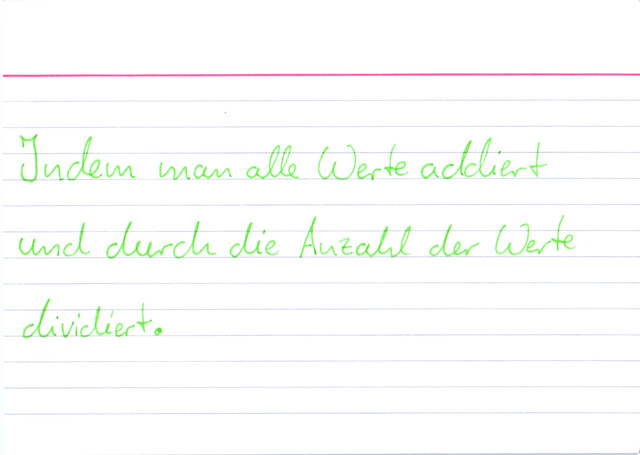 Indem man alle Werte addiert
und durch die Anzahl der Werte
dividiert.